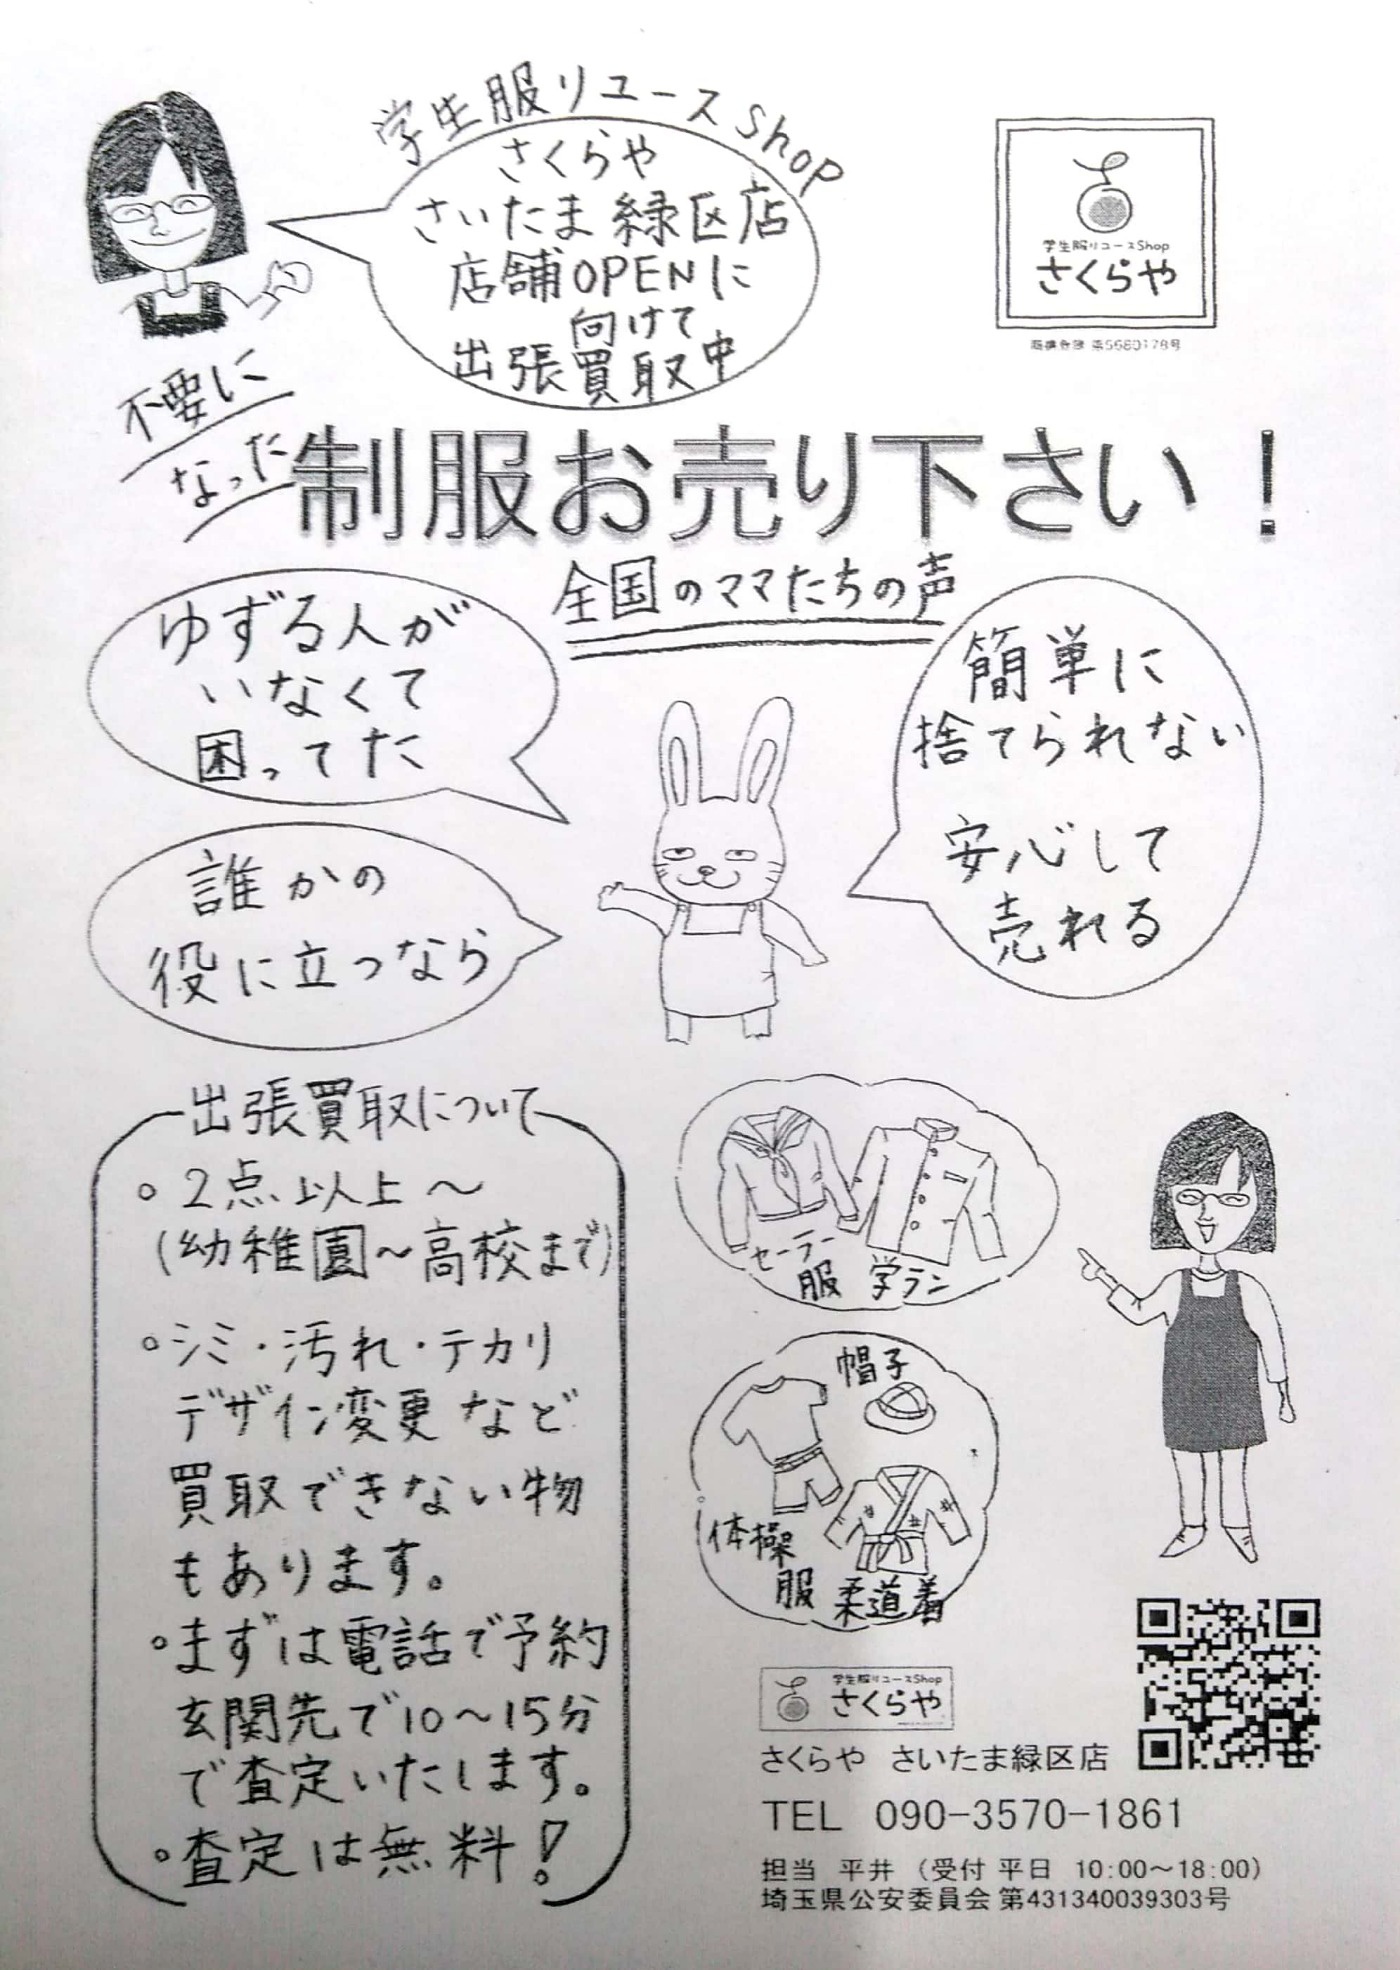 学生服リユースShop
さくらや
さいたま緑区店
店舗OPENに
向けて
出張買取中
学生服リユースShop
さくらや
商標登録 第5680178号
不要に
なった
制服お売り下さい!
全国のママたちの声
ゆずる人が
いなくて
困ってた
簡単に
捨てられない
安心して
売れる
誰かの
役に立つなら
出張買取について
○2点以上~
(幼稚園~高校まで)
○シミ・汚れ・テカリ
デザイン変更など
買取できない物
もあります。
○まずは電話で予約
玄関先で10~15分
で査定いたします。
○査定は無料!
セーラー
服
学ラン
帽子
体操
服
柔道着
学生服リユースShop
さくらや
さくらや さいたま緑区店
TEL 090-3570-1861
担当 平井 (受付 平日 10:00~18:00)
埼玉県公安委員会 第431340039303号